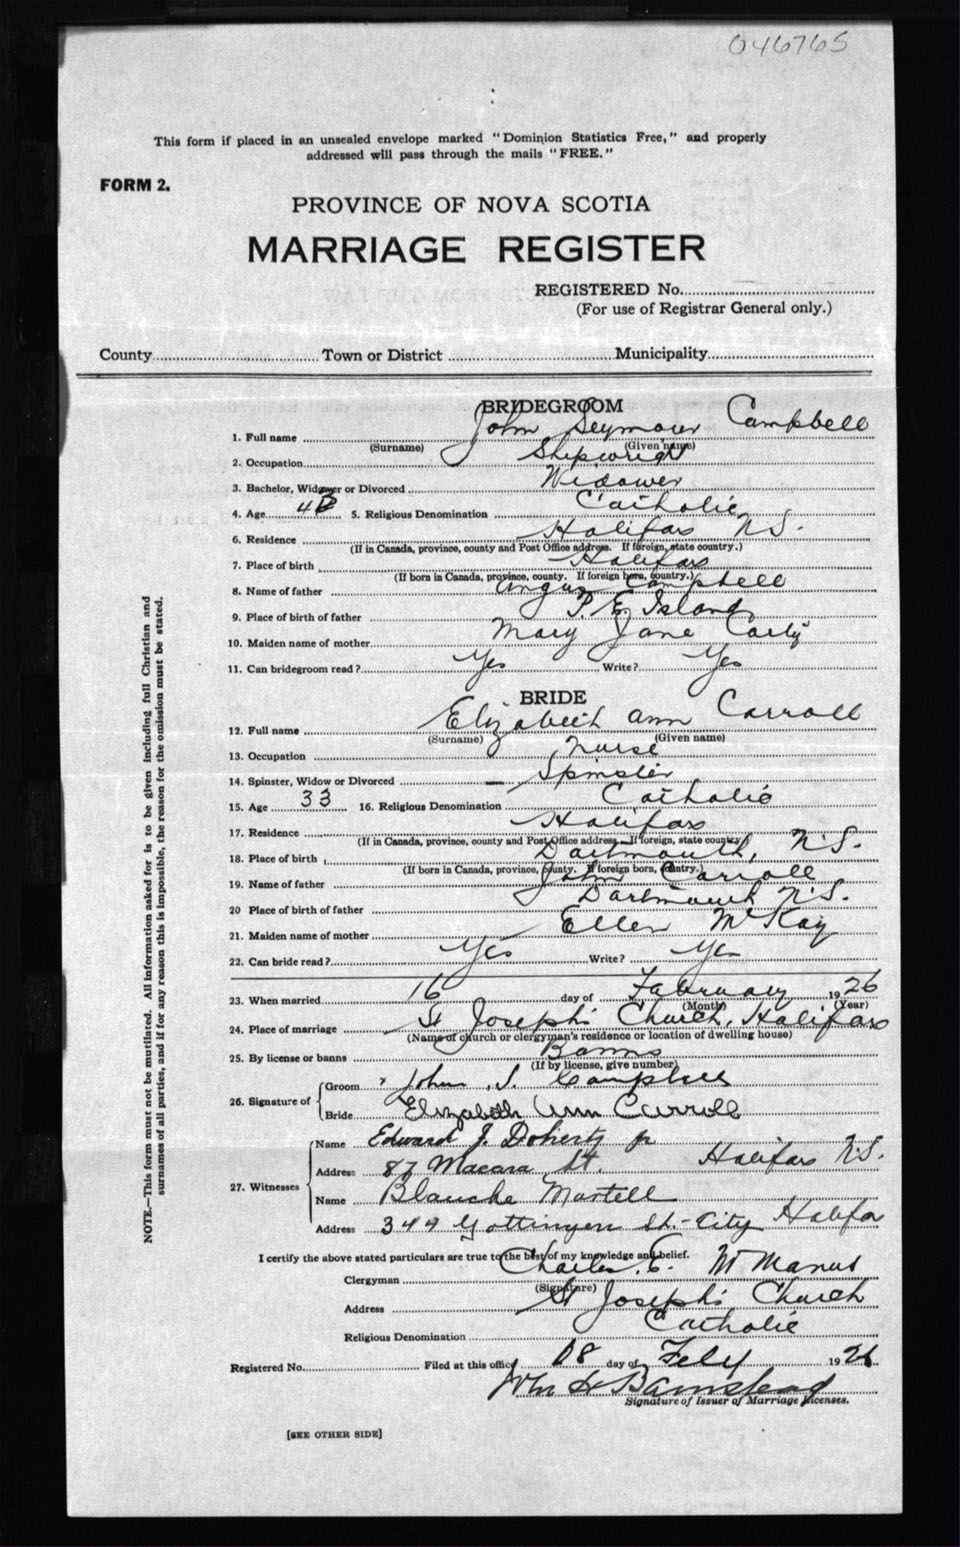 046765
This form if placed in an unsealed envelope marked "Dominion Statistics Free," and properly
addressed will pass through the mails "FREE."
FORM 2.
PROVINCE OF NOVA SCOTIA
MARRIAGE REGISTER
REGISTERED No.
(For use of Registrar General only.)
County Town or District Municipality
BRIDEGROOM
1. Full name John Seymour Campbell
(Surname) (Given name)
2. Occupation Shipwright
3. Bachelor, Widower or Divorced Widower
4. Age 5. Religious Denomination Catholic
6. Residence Halifax N.S.
(If in Canada, province, county and Post Office address. If foreign, state country.)
7. Place of birth Halifax
(If born in Canada, province, county. If foreign born, country.)
8. Name of father Angus Campbell
9. Place of birth of father P. E. Island
10. Maiden name of mother Mary Jane
11. Can bridegroom read? Yes Write? Yes
BRIDE
12. Full name Elizabeth Ann Carroll
(Surname) (Given name)
13. Occupation Nurse
14. Spinster, Widow or Divorced — Spinster
15. Age 33 16. Religious Denomination Catholic
17. Residence Halifax
(If in Canada, province, county and Post Office address. If foreign, state country.)
18. Place of birth Dartmouth, N.S.
(If born in Canada, province, county. If foreign born, country.)
19. Name of father John Carroll
20 Place of birth of father Dartmouth N.S.
21. Maiden name of mother Ellen McKay
22. Can bride read? Yes Write? Yes
23. When married 16 day of February 1926
(Month) (Year)
24. Place of marriage St Joseph's Church, Halifax
(Name of church or clergyman's residence or location of dwelling house)
25. By license or banns Banns
(If by license, give number)
26. Signature of
Groom John S. Campbell
Bride Elizabeth Ann Carroll
27. Witnesses
Name Edward J. Doherty jr
Address 87 Macara St. Halifax N.S.
Name Blanche Martell
Address 344 Gottingen St.-City Halifax
I certify the above stated particulars are true to the best of my knowledge and belief.
Clergyman Charles E. McManus
(Signature)
Address St Joseph's Church
Religious Denomination Catholic
Registered No. Filed at this office 18 day of Feby 1926
Wm H Barnstead
Signature of Issuer of Marriage Licenses.
[SEE OTHER SIDE]
NOTE.—This form must not be mutilated. All information asked for is to be given including full Christian and
surnames of all parties, and if for any reason this is impossible, the reason for the omission must be stated.